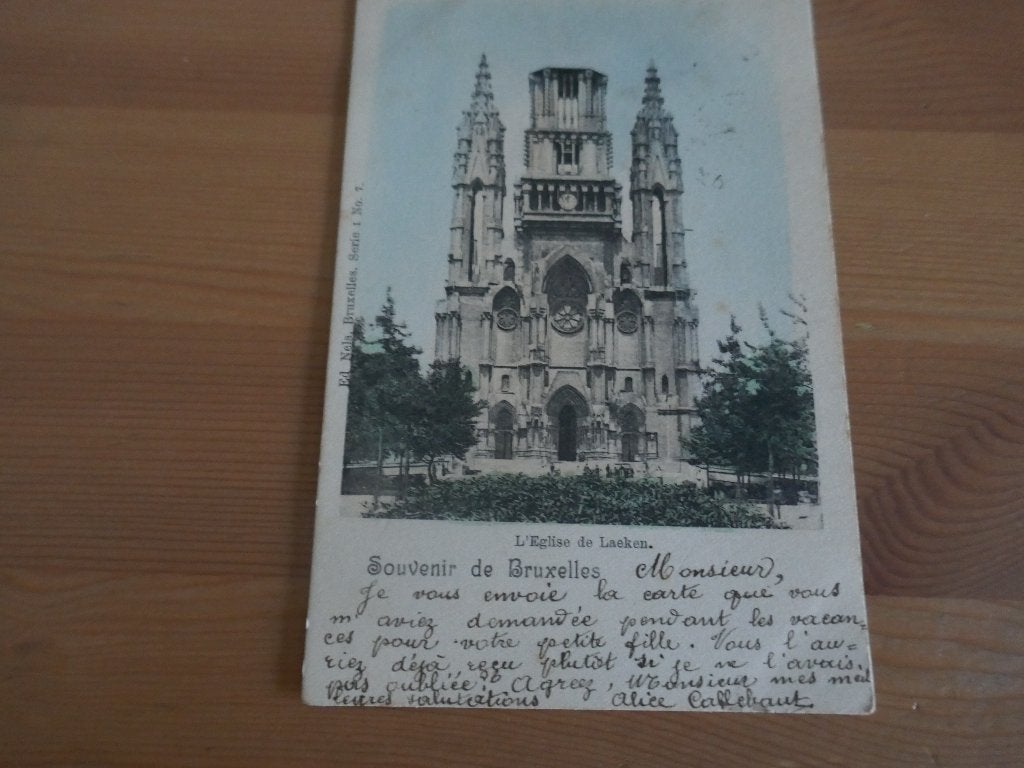 Ed. Nels, Bruxelles, Serie 1 No. 7.
L'Eglise de Laeken.
Souvenir de Bruxelles Monsieur,
Je vous envoie la carte que vous
m'aviez demandée pendant les vacan-
ces pour votre petite fille. Vous l'au-
riez déjà reçu plutôt si je ne l'avais
pas oubliée. Agreez, Monsieur mes meil
leures salutations Alice Callebaut